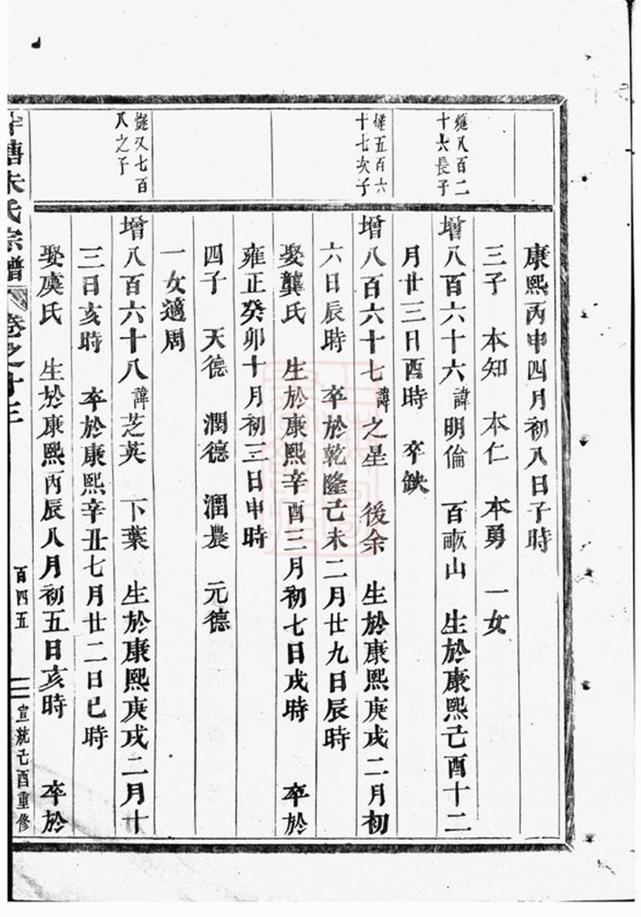 康熙丙申四月初八日子時
三子 本知 本仁 本勇 一女
繼八百二
十六長子
增八百六十六諱明倫 百畝山 生於康熙己酉十二
月廿三日酉時 卒缺
繼五百六
十七次子
增八百六十七諱之星 後余 生於康熙庚戌二月初
六日辰時 卒於乾隆己未二月廿九日辰時
娶龔氏 生於康熙辛酉三月初七日戌時 卒於
雍正癸卯十月初三日申時
四子 天德 潤德 潤農 元德
一女適周
繼又七百
八之子
增八百六十八諱芝英 下葉 生於康熙庚戌二月十
三日亥時 卒於康熙辛丑七月廿二日巳時
娶虞氏 生於康熙丙辰八月初五日亥時 卒於
塘朱氏宗譜 卷之十三 百四五 宣統己酉重修